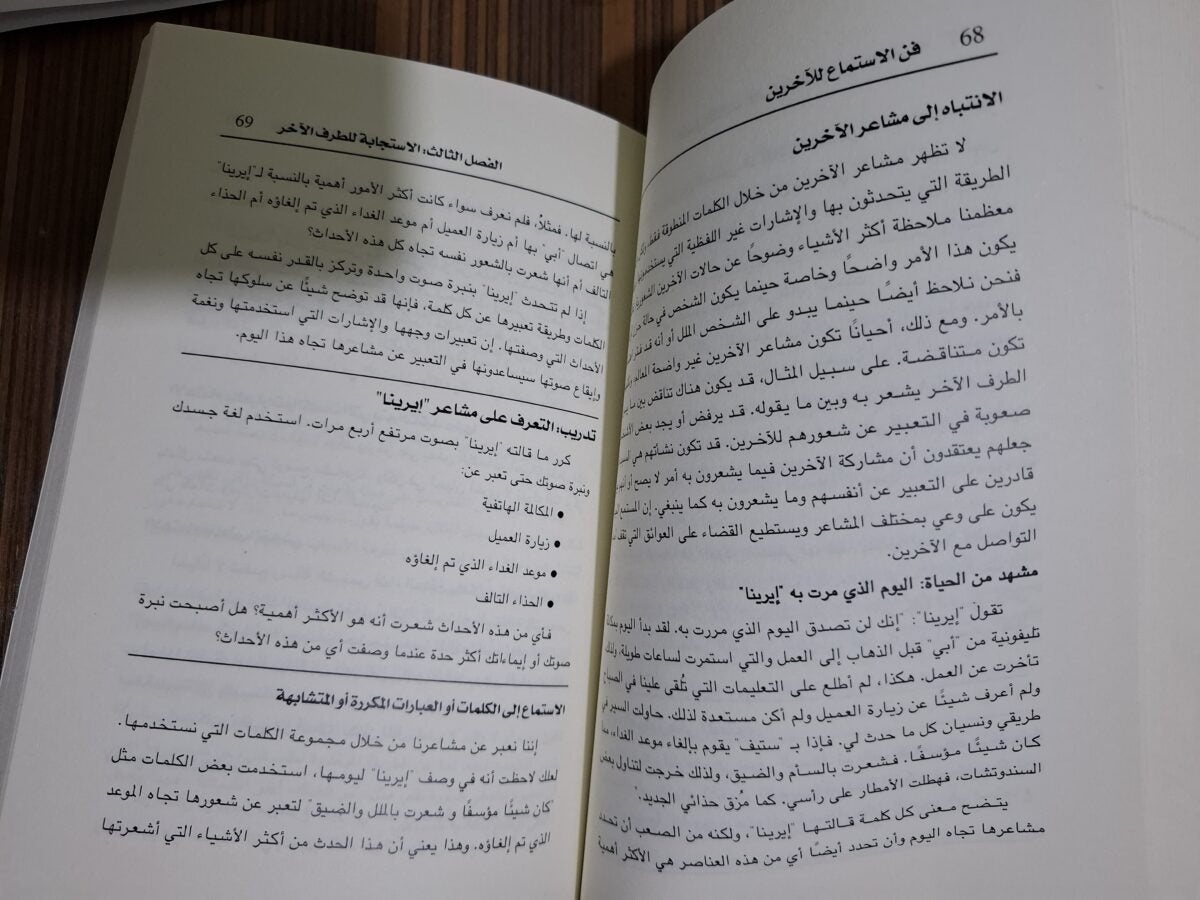 68
فن الاستماع للآخرين
الانتباه إلى مشاعر الآخرين
لا تظهر مشاعر الآخرين من خلال الكلمات المنطوقة فقط،
الطريقة التي يتحدثون بها والإشارات غير اللفظية التي
معظمنا ملاحظة أكثر الأشياء وضوحًا عن حالات الآخرين
يكون هذا الأمر واضحًا وخاصة حينما يكون الشخص في حالة
فنحن نلاحظ أيضًا حينما يبدو على الشخص الملل أو أنه قد
بالأمر. ومع ذلك، أحيانًا تكون مشاعر الآخرين غير واضحة
تكون متناقضة. على سبيل المثال، قد يكون هناك تناقض بين ما
الطرف الآخر يشعر به وبين ما يقوله. قد يرفض أو يجد بعض
صعوبة في التعبير عن شعورهم للآخرين. قد تكون نشأتهم هي
جعلهم يعتقدون أن مشاركة الآخرين فيما يشعرون به أمر لا يصح أو
قادرين على التعبير عن أنفسهم وما يشعرون به كما ينبغي. إن المستمع
يكون على وعي بمختلف المشاعر ويستطيع القضاء على العوائق التي تقف
التواصل مع الآخرين.
مشهد من الحياة: اليوم الذي مرت به "إيرينا"
تقول "إيرينا": "إنك لن تصدق اليوم الذي مررت به. لقد بدأ اليوم
تليفونية من "أبي" قبل الذهاب إلى العمل والتي استمرت لساعات طويلة،
تأخرت عن العمل. هكذا، لم أطلع على التعليمات التي تُلقى علينا في الصباح
ولم أعرف شيئًا عن زيارة العميل ولم أكن مستعدة لذلك. حاولت السير في
طريقي ونسيان كل ما حدث لي. فإذا بـ "ستيف" يقوم بإلغاء موعد الغداء،
كان شيئًا مؤسفًا. فشعرت بالسأم والضيق، ولذلك خرجت لتناول بعض
السندوتشات، فهطلت الأمطار على رأسي. كما مُزق حذائي الجديد."
يتضح معنى كل كلمة قالتها "إيرينا"، ولكنه من الصعب أن تحدد
مشاعرها تجاه اليوم وأن تحدد أيضًا أي من هذه العناصر هي الأكثر أهمية
الفصل الثالث: الاستجابة للطرف الآخر
69
بالنسبة لها. فمثلاً، فلم نعرف سواء كانت أكثر الأمور أهمية بالنسبة لـ"إيرينا"
هي اتصال "أبي" بها أم زيارة العميل أم موعد الغداء الذي تم إلغاؤه أم الحذاء
التالف أم أنها شعرت بالشعور نفسه تجاه كل هذه الأحداث؟
إذا لم تتحدث "إيرينا" بنبرة صوت واحدة وتركز بالقدر نفسه على كل
الكلمات وطريقة تعبيرها عن كل كلمة، فإنها قد توضح شيئًا عن سلوكها تجاه
الأحداث التي وصفتها. إن تعبيرات وجهها والإشارات التي استخدمتها ونغمة
وإيقاع صوتها سيساعدونها في التعبير عن مشاعرها تجاه هذا اليوم.
تدريب: التعرف على مشاعر "إيرينا"
كرر ما قالته "إيرينا" بصوت مرتفع أربع مرات. استخدم لغة جسدك
ونبرة صوتك حتى تعبر عن:
• المكالمة الهاتفية
• زيارة العميل
• موعد الغداء الذي تم إلغاؤه
• الحذاء التالف
فأي من هذه الأحداث شعرت أنه هو الأكثر أهمية؟ هل أصبحت نبرة
صوتك أو إيماءاتك أكثر حدة عندما وصفت أي من هذه الأحداث؟
الاستماع إلى الكلمات أو العبارات المكررة أو المتشابهة
إننا نعبر عن مشاعرنا من خلال مجموعة الكلمات التي نستخدمها.
لعلك لاحظت أنه في وصف "إيرينا" ليومها، استخدمت بعض الكلمات مثل
"كان شيئًا مؤسفًا و شعرت بالملل والضيق" لتعبر عن شعورها تجاه الموعد
الذي تم إلغاؤه. وهذا يعني أن هذا الحدث من أكثر الأشياء التي أشعرتها